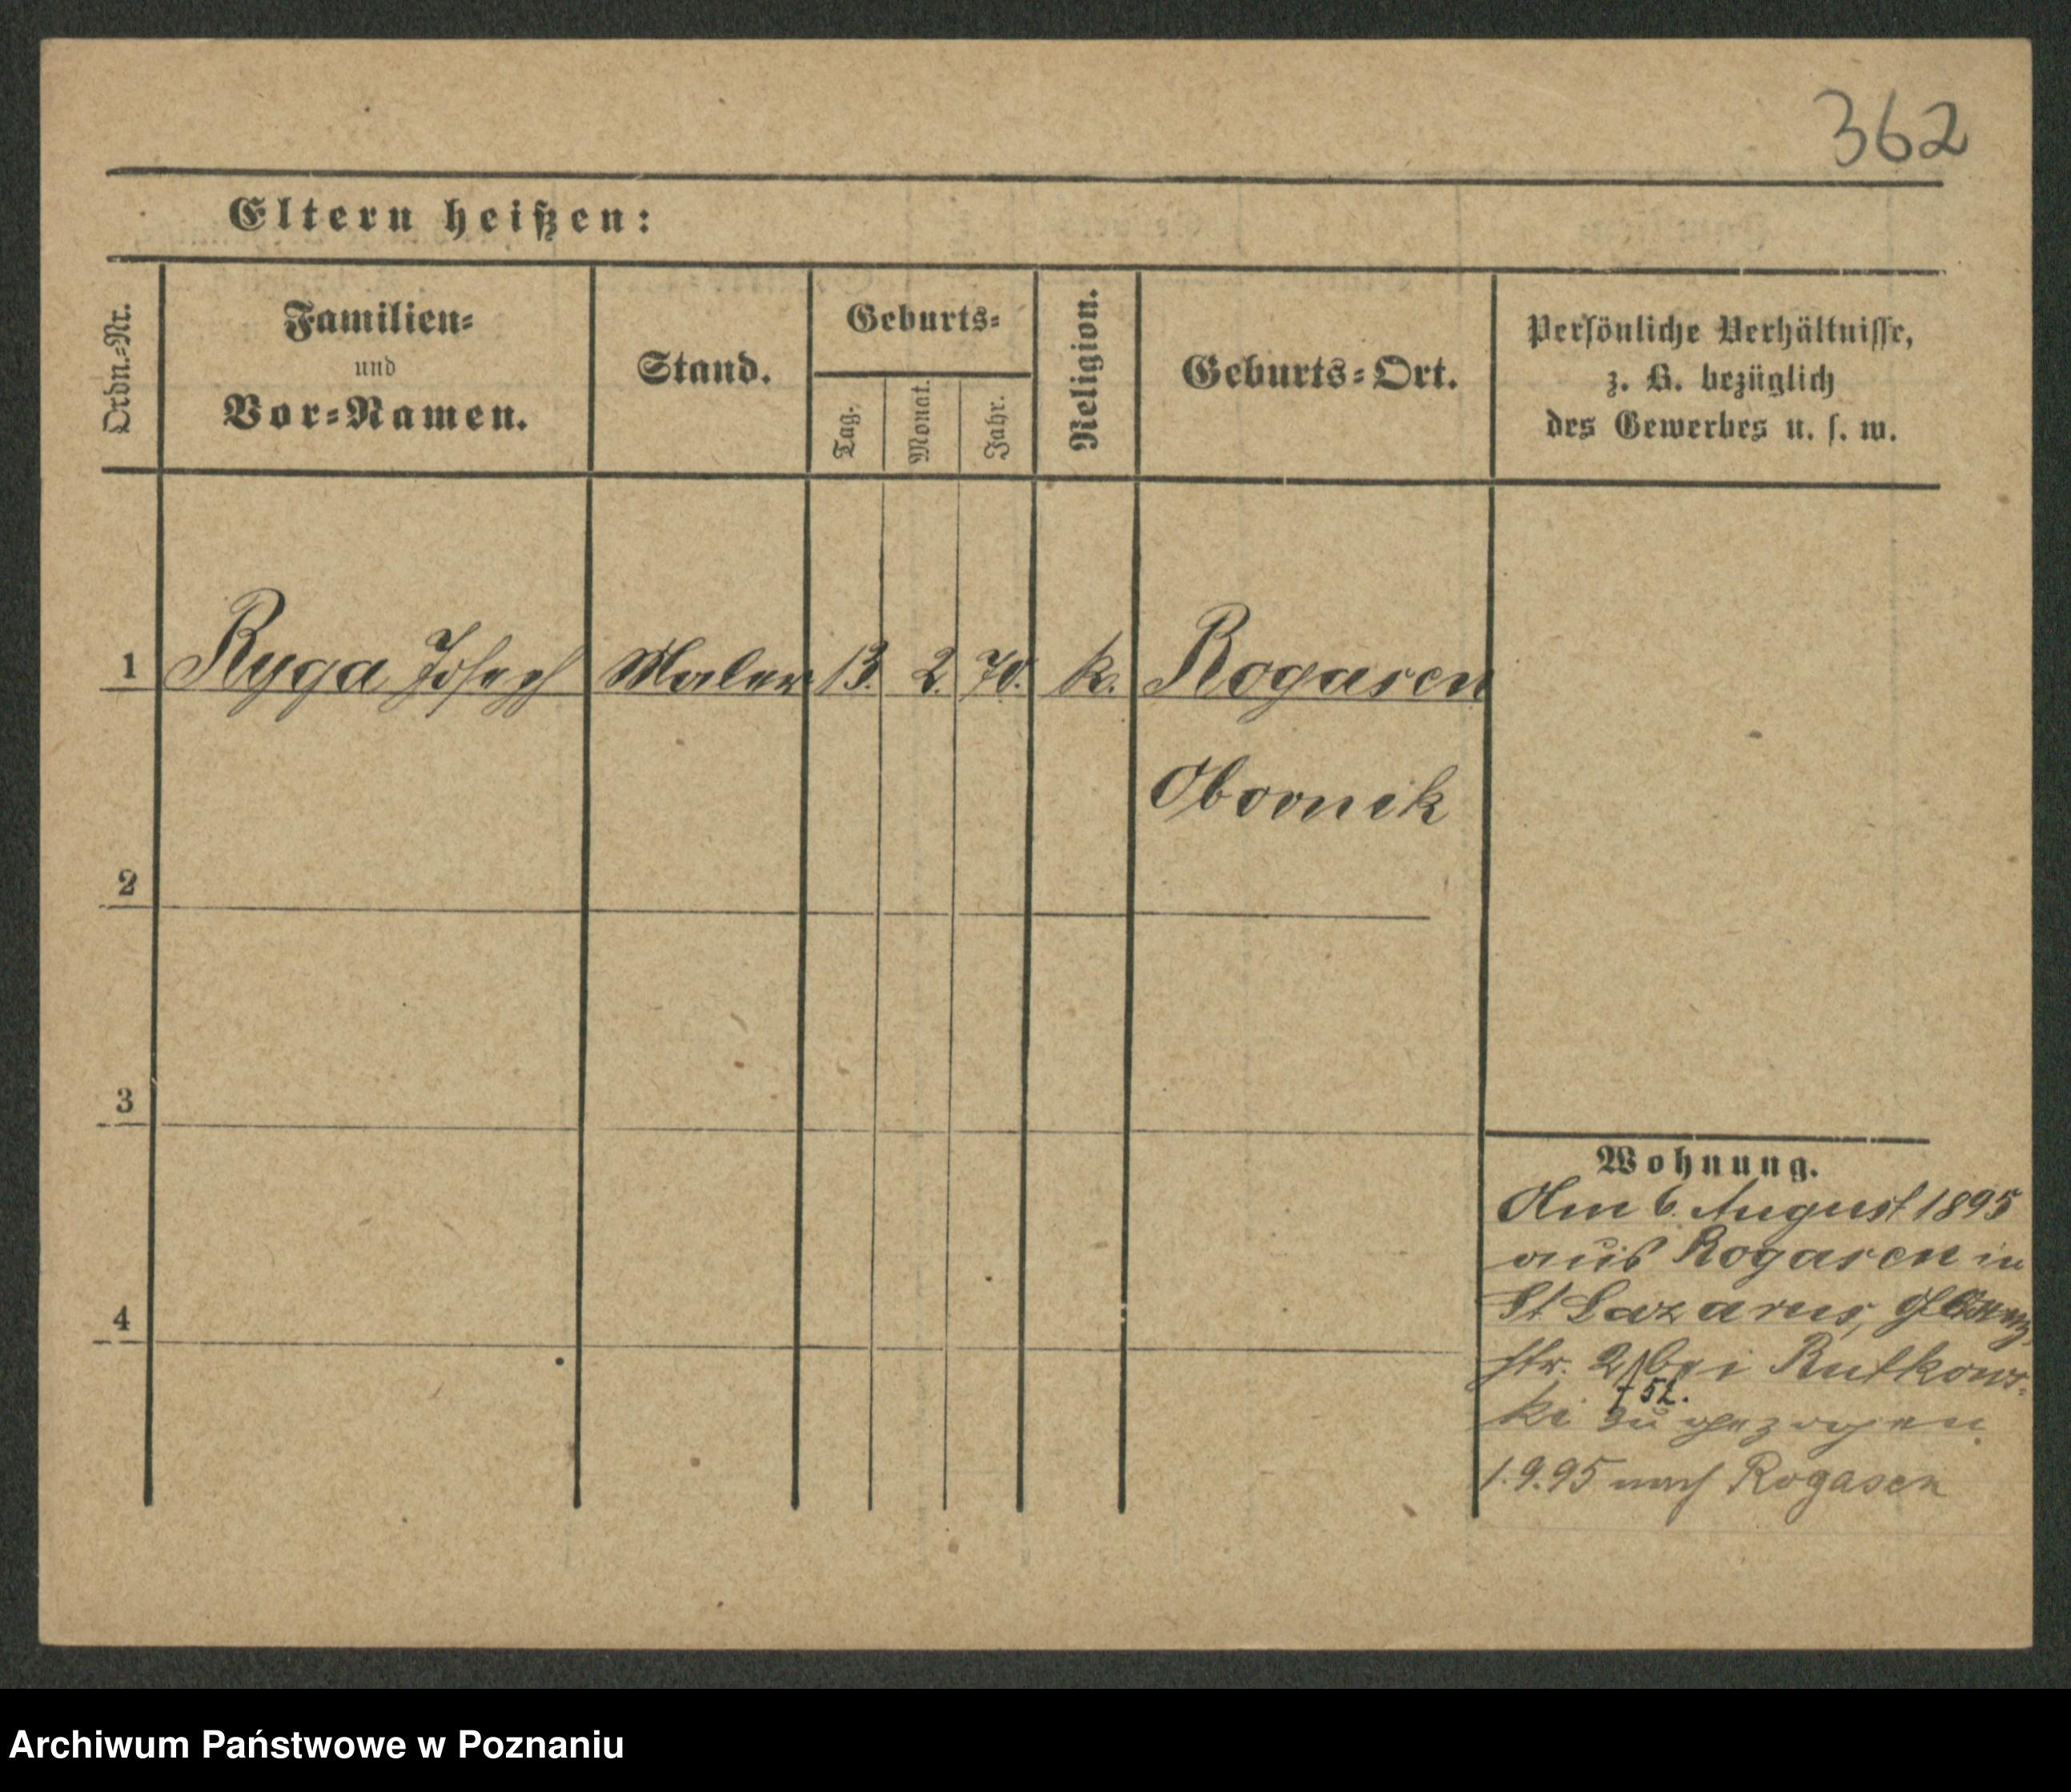 362
Eltern heißen:
Ordn.-Nr.
Familien-
und
Vor-Namen.
Stand.
Geburts-
Tag.
Monat.
Jahr.
Religion.
Geburts-Ort.
Persönliche Verhältnisse,
z. B. bezüglich
des Gewerbes u. s. w.
1 Ryga Joseph Maler 13. 2. 70. k. Rogasen
Obornik
2
3
4
Wohnung.
Am 6. August 1895
aus Rogasen in
St Lazarus,
str. 21 bei Rutkows-
ki zugezogen.
1.9.95 nach Rogasen
Archiwum Państwowe w Poznaniu